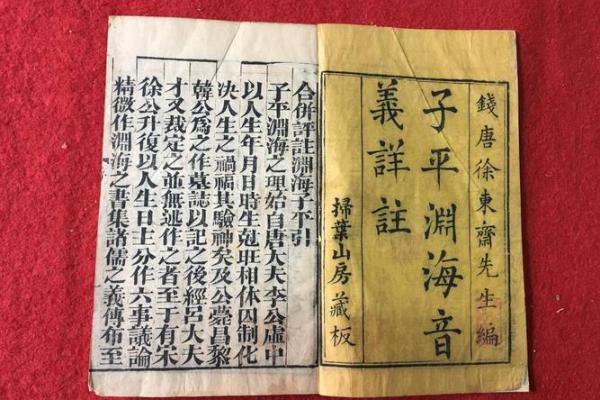 錢唐徐東齋先生編
子平淵海音
義詳註
掃葉山房藏板
合併評註淵海子平引
子平淵海之理始自唐大夫李公虛中
以人生年月日時生剋旺相休囚制化
决人生之禍福其驗神矣及公薨昌黎
韓公爲之作墓誌以記之後經呂大夫
才又裁定之並無述作之者至于有宋
徐公升復以人生日主分作六事議論
精微作淵海之書集諸儒之義傳布至